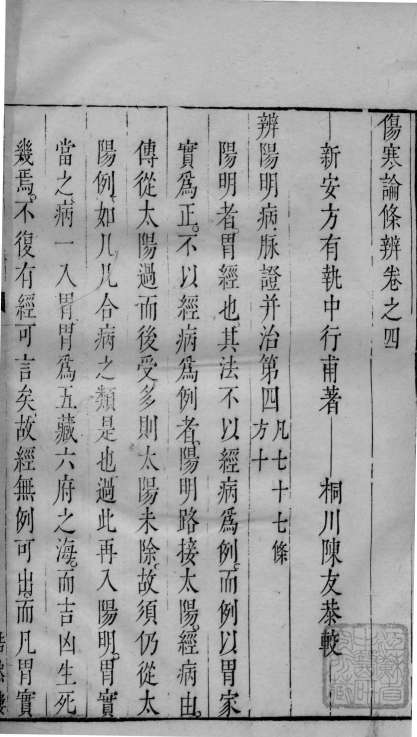 傷寒論條辨卷之四
新安方有執中行甫著
桐川陳友恭較
辨陽明病脉證并治第四
凡七十七條
方十
陽明者。胃經也。其法不以經病爲例。而例以胃家
實爲正。不以經病爲例者。陽明路接太陽。經病由
傳從太陽過而後受。多則太陽未除。故須仍從太
陽例。如几几合病之類是也。過此再入陽明。胃實
當之。病一入胃。胃爲五藏六府之海。而吉凶生死
幾焉。不復有經可言矣。故經無例可出。而凡胃實